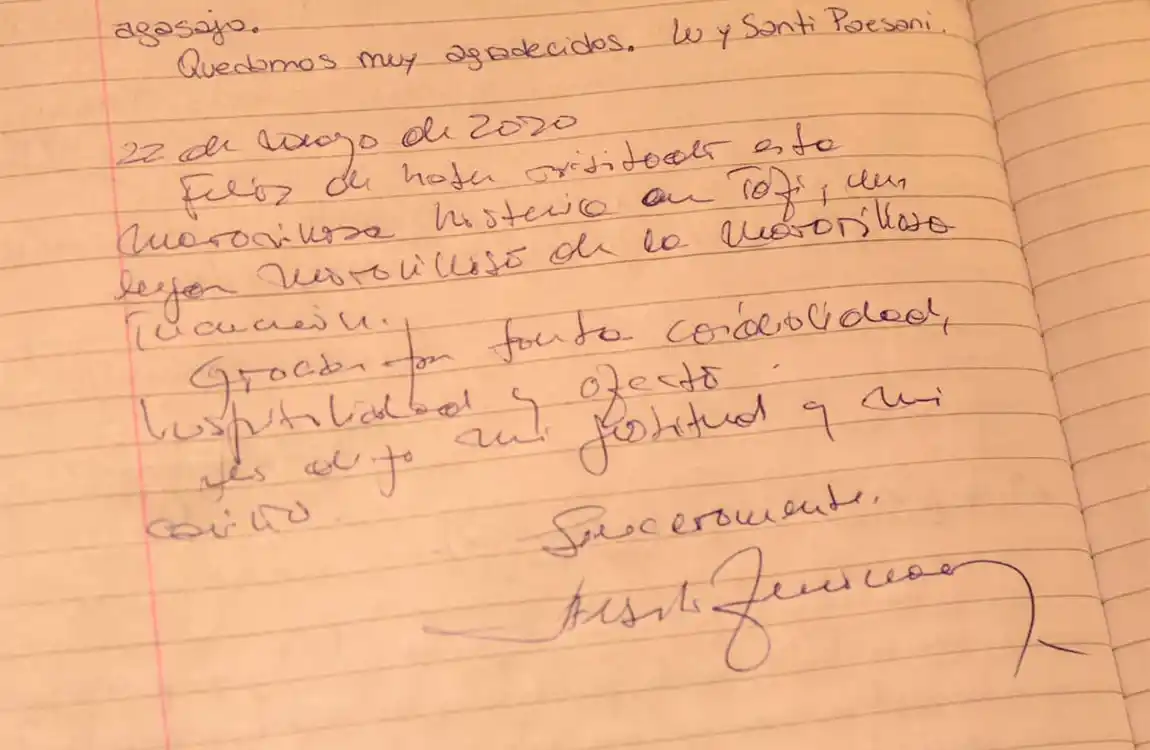 agasajo.
Quedamos muy agradecidos. Lu y Santi Paesani.
22 de marzo de 2020
Feliz de haber visitado esta
maravillosa hosteria en Tafi, un
lugar maravilloso de la maravillosa
Tucumán.
Gracias por tanta cordialidad,
hospitalidad y afecto
les dejo mi gratitud y mi
cariño
Sinceramente.